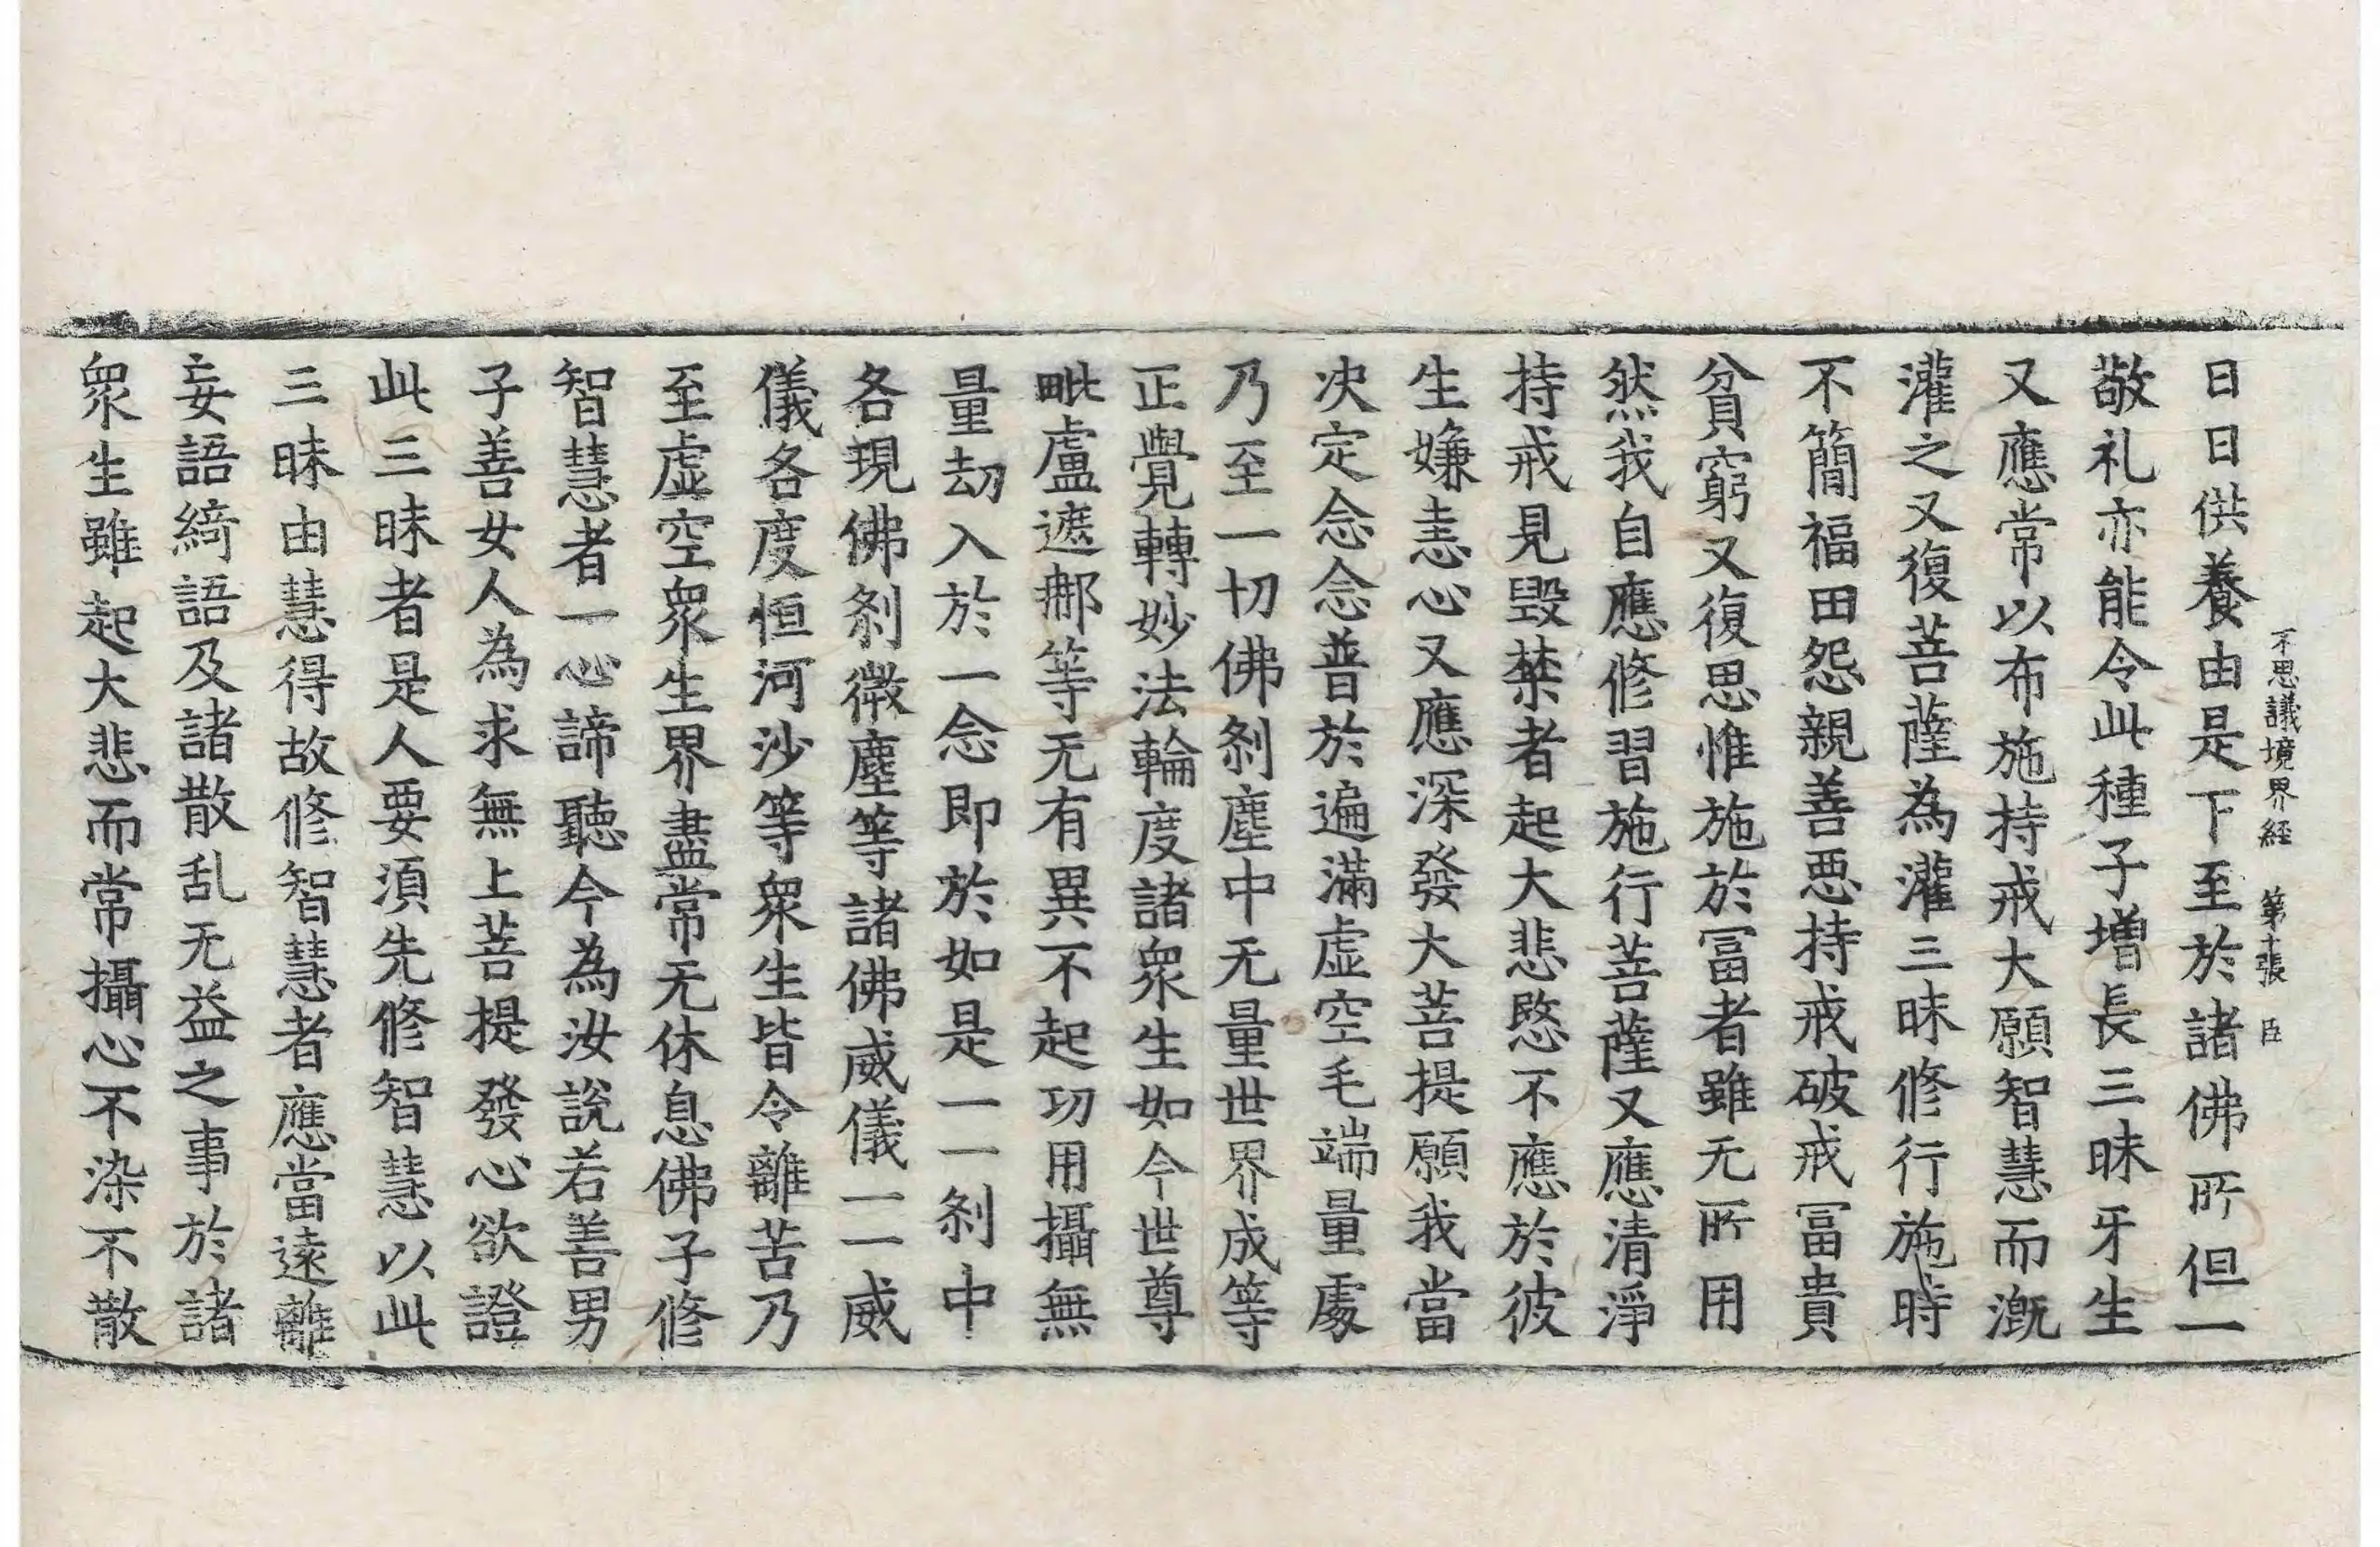 不思議境界經 第十張 臣
日日供養由是下至於諸佛所但一
敬礼亦能令此種子增長三昧牙生
又應常以布施持戒大願智慧而溉
灌之又復菩薩為灌三昧修行施時
不簡福田怨親善惡持戒破戒冨貴
貧窮又復思惟施於冨者雖无所用
然我自應修習施行菩薩又應清淨
持戒見毀禁者起大悲愍不應於彼
生嫌恚心又應深發大菩提願我當
决定念念普於遍滿虛空毛端量處
乃至一切佛剎塵中无量世界成等
正覺轉妙法輪度諸眾生如今世尊
毗盧遮那等无有異不起功用攝無
量劫入於一念即於如是一一剎中
各現佛剎微塵等諸佛威儀一一威
儀各度恒河沙等眾生皆令離苦乃
至虛空眾生界盡常无休息佛子修
智慧者一心諦聽今為汝說若善男
子善女人為求無上菩提發心欲證
此三昧者是人要須先修智慧以此
三昧由慧得故修智慧者應當遠離
妄語綺語及諸散乱无益之事於諸
眾生雖起大悲而常攝心不染不散